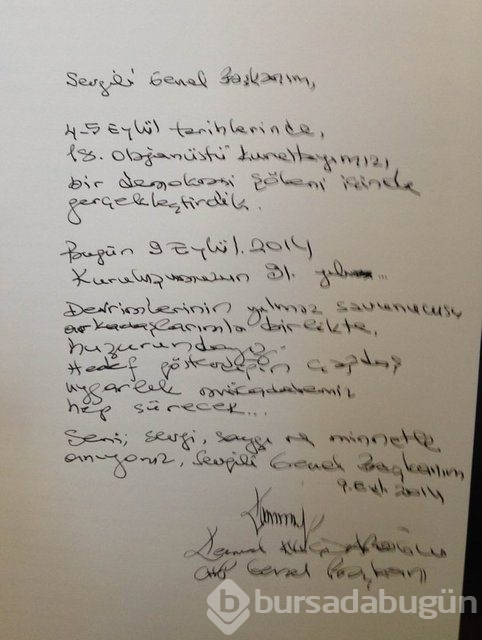 Sevgili Genel Başkanım,
4-5 Eylül tarihlerinde,
18. Olağanüstü Kurultayımızı,
bir demokrasi şöleni içinde
gerçekleştirdik.
Bugün 9 Eylül. 2014
Kuruluşumuzun 91. yılı...
Devrimlerinin yılmaz savunucusu
arkadaşlarımla birlikte,
huzurundayız
Hedef gösterdiğin çağdaş
uygarlık mücadelemiz
hep sürecek...
Seni; sevgi, saygı ve minnetle
anıyoruz, Sevgili Genel Başkanım
9. Eyl. 2014
Kemal Kılıçdaroğlu
CHP Genel Başkanı
b bursadabugün